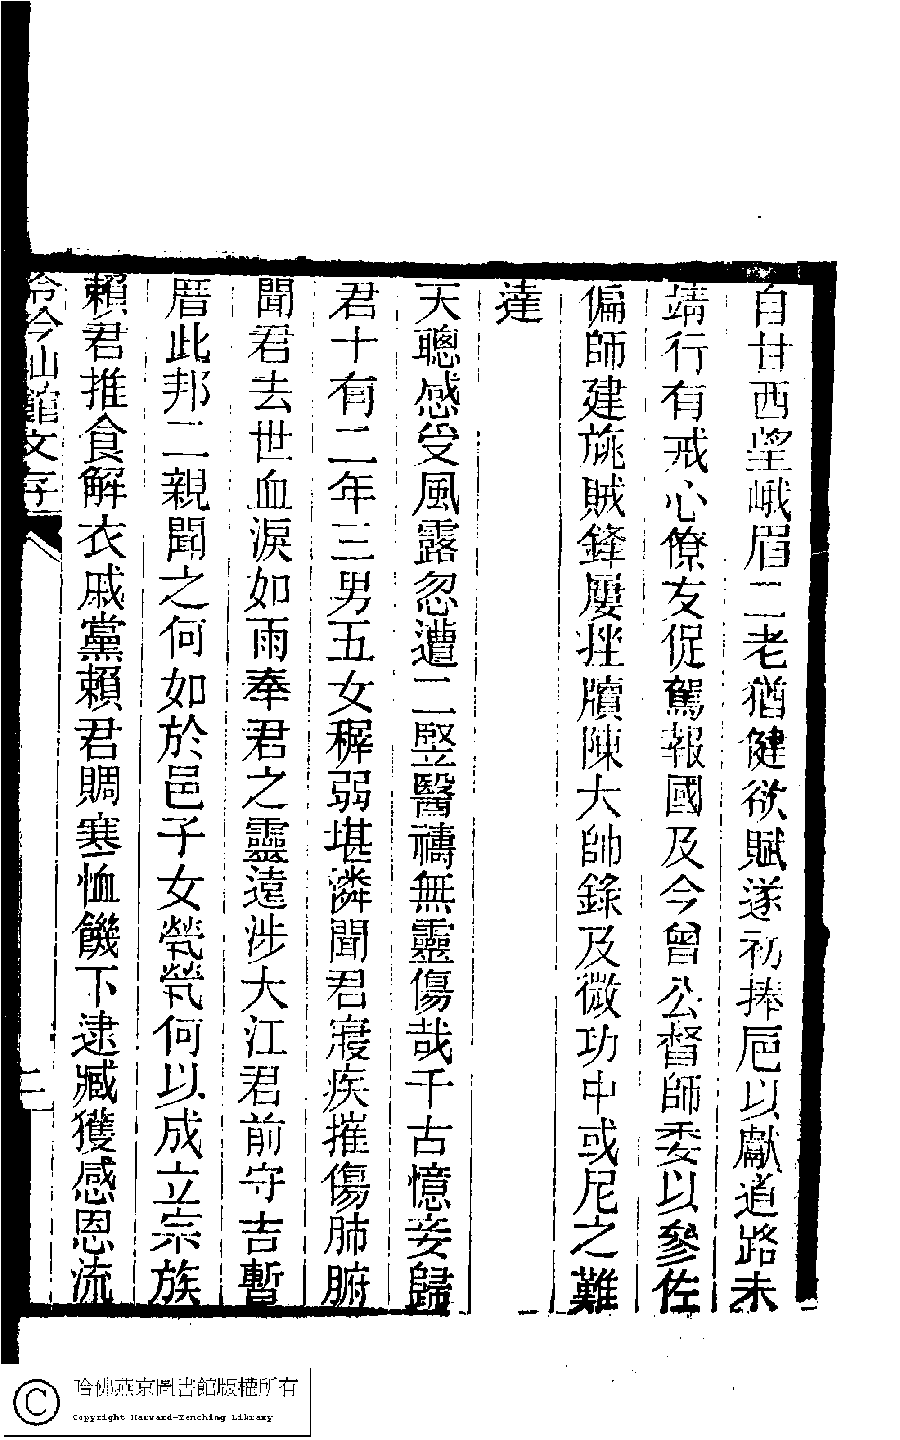 自甘西望峨眉二老猶健欲賦遂初捧卮以獻道路未
靖行有戒心僚友促駕報國及今曾公督師委以參佐
偏師建旐賊鋒屢挫牘陳大帥錄及微功中或尼之難
達
天聰感受風露忽遭二豎醫禱無靈傷哉千古憶妾歸
君十有二年三男五女穉弱堪憐聞君寢疾摧傷肺腑
聞君去世血淚如雨奉君之靈遠涉大江君前守吉暫
厝此邦二親聞之何如於邑子女煢煢何以成立宗族
賴君推食解衣戚黨賴君賙寒恤饑下逮臧獲感恩流
館文存
二
哈佛燕京圖書館版權所有
Copyright Harvard-Yenching Library